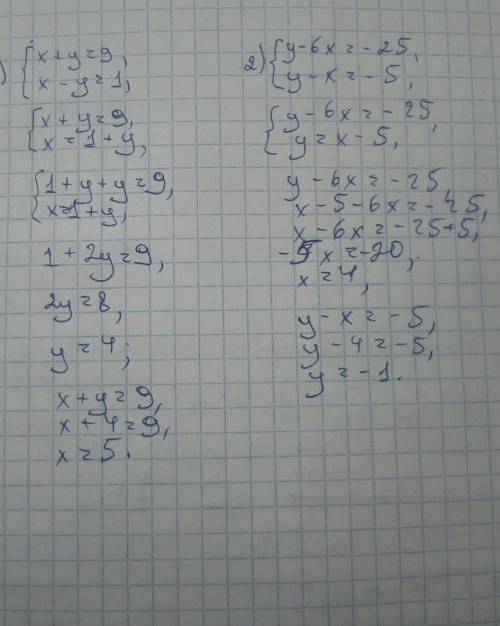 ) { x+y=9,
x-y=1,
{ x+y=9,
x=1+y,
{ 1+y+y=9,
x=1+y,
1+2y=9,
2y=8,
y=4;
x+y=9,
x+4=9,
x=5.
2) { y-6x=-25,
y-x=-5,
{ y-6x=-25,
y=x-5,
y-6x=-25,
x-5-6x=-25,
x-6x=-25+5,
-5x=-20,
x=4;
y-x=-5,
y-4=-5,
y=-1.